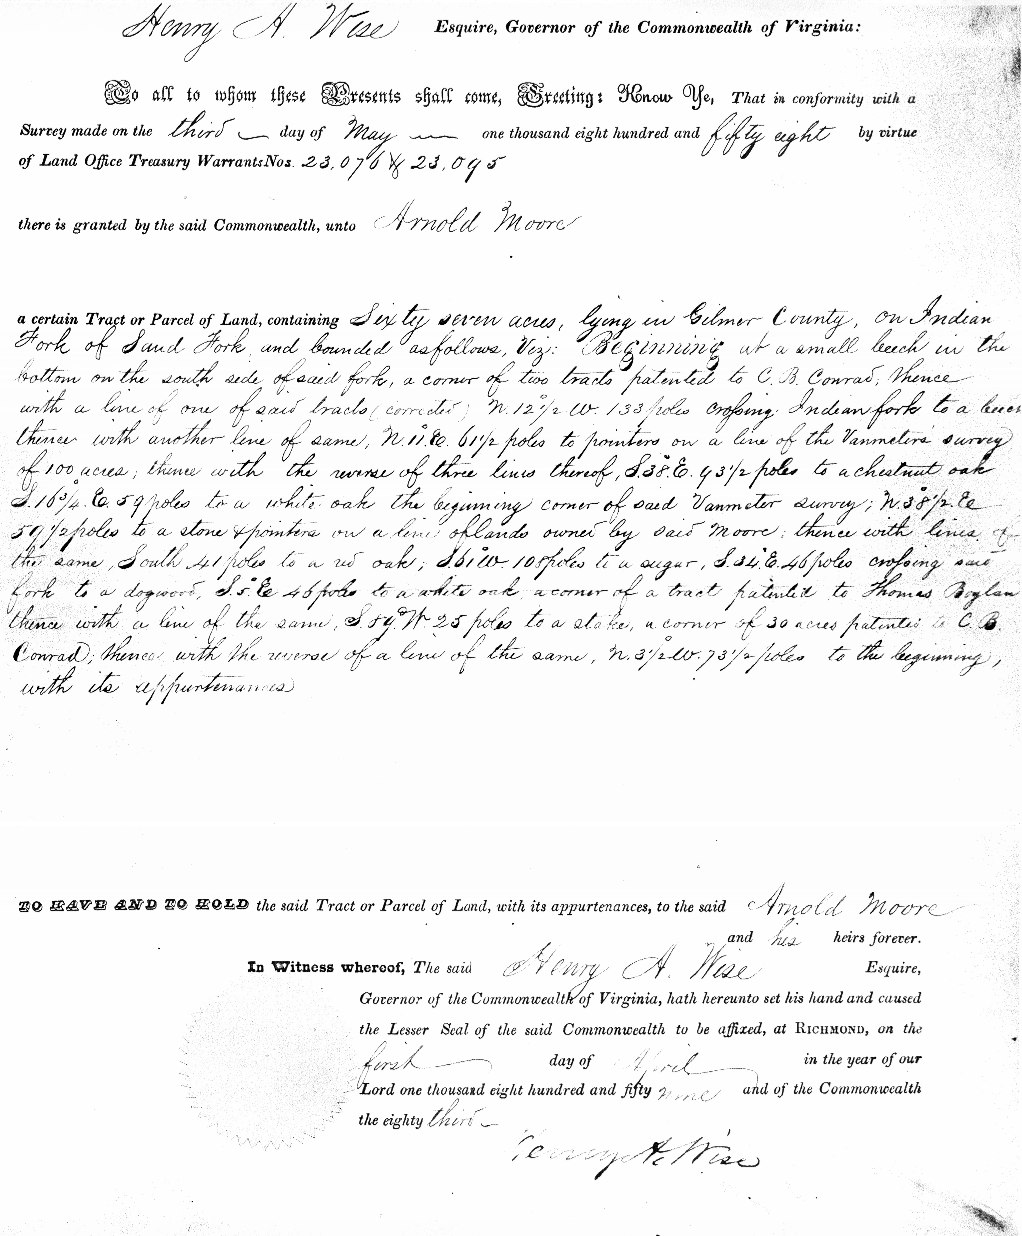 Henry A. Wise Esquire, Governor of the Commonwealth of Virginia:
To all to whom these Presents shall come, Greeting: Know Ye, That in conformity with a
Survey made on the third day of May one thousand eight hundred and fifty eight by virtue
of Land Office Treasury Warrants Nos. 23,076 & 23,095
there is granted by the said Commonwealth, unto Arnold Moore
a certain Tract or Parcel of Land, containing Sixty seven acres, lying in Gilmer County, on Indian
Fork of Sand Fork, and bounded as follows, Viz: Beginning at a small beech in the
bottom on the south side of said fork, a corner of two tracts patented to C. B. Conrad; thence
with a line of one of said tracts (corrected) N. 12°1/2 W. 133 poles crossing Indian fork to a beech
thence with another line of same, N. 11.°E. 61 1/2 poles to pointers on a line of the Vanmeters survey
of 100 acres; thence with the reverse of three lines thereof, S. 38°E. 93 1/2 poles to a chestnut oak
S. 16°3/4. E. 59 poles to a white oak the beginning corner of said Vanmeter survey; N. 38°1/2. E
59 1/2 poles to a stone & pointers on a line of lands owned by said Moore; thence with lines of
the same, South 41 poles to a red oak; S. 61°W. 108 poles to a sugar, S. 34°E. 46 poles crossing said
fork to a dogwood, S. 5.°E 46 poles to a white oak, a corner of a tract patented to Thomas Boylan
thence with a line of the same, S. 59.°W. 25 poles to a stake, a corner of 30 acres patented to C. B.
Conrad; thence with the reverse of a line of the same, N. 3°1/2 W. 73 1/2 poles to the beginning,
with its appurtenances
TO HAVE AND TO HOLD the said Tract or Parcel of Land, with its appurtenances, to the said Arnold Moore
and his heirs forever.
In Witness whereof, The said Henry A. Wise Esquire,
Governor of the Commonwealth of Virginia, hath hereunto set his hand and caused
the Lesser Seal of the said Commonwealth to be affixed, at RICHMOND, on the
first day of April in the year of our
Lord one thousand eight hundred and fifty nine and of the Commonwealth
the eighty third
Henry A. Wise